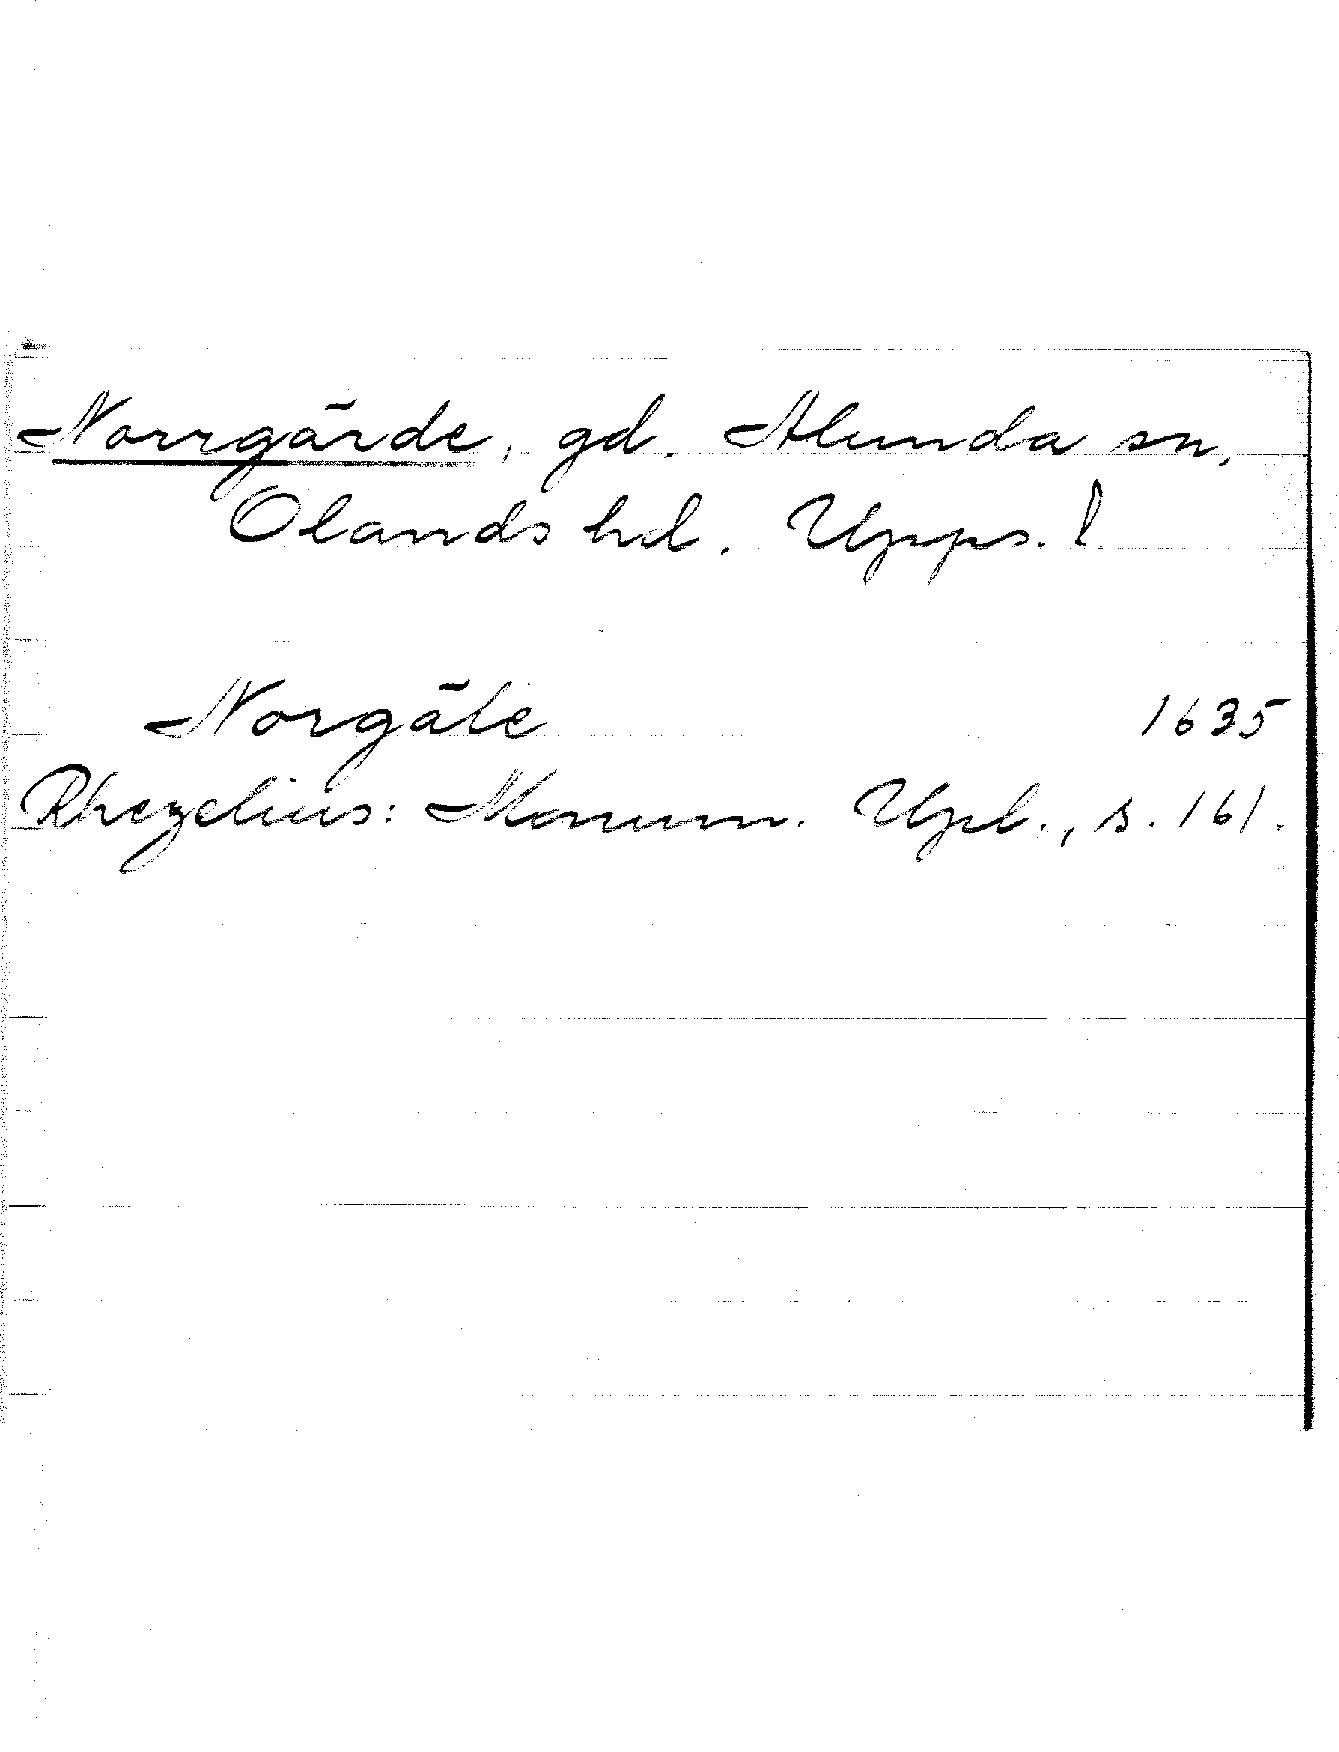 Norrgärde, gd. Alunda sn,
Olands hd. Upps. l.
Norgäle 1635
Rhezelius: Monum. Upl., s. 161.